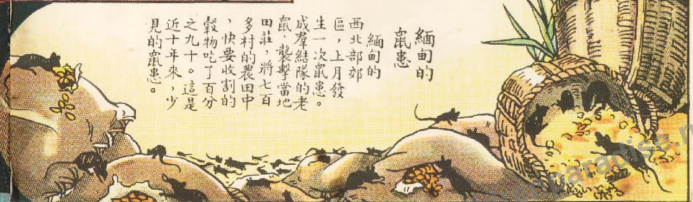 緬甸的
鼠患
緬甸的
西北部郊
區，上月發
生一次鼠患。
成羣結隊的老
鼠，襲擊當地
田莊，將七百
多村的農田中
，快要收割的
穀物吃了百分
之九十。這是
近十年來，少
見的鼠患。